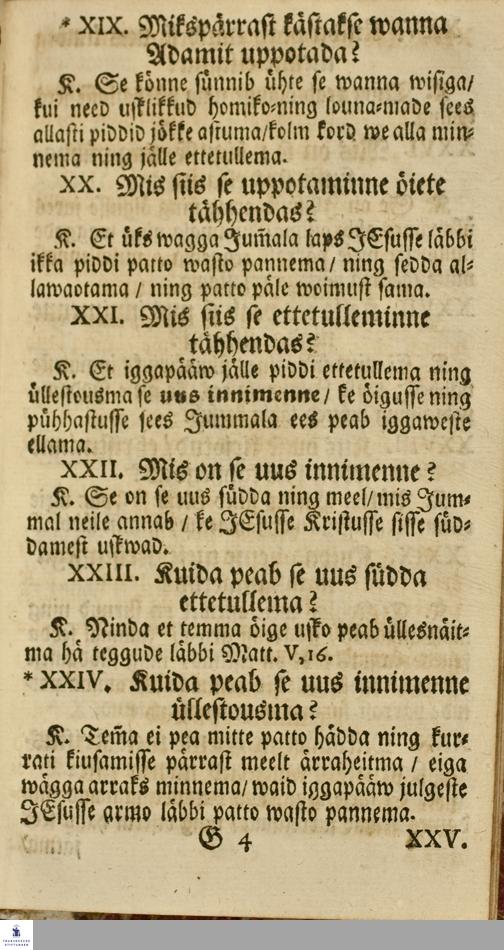 * XIX. Mikspärrast kästakse wanna
Adamit uppotada?
K. Se könne sünnib ühte se wanna wisiga/
kui need usklikkud homiko-ning louna-made sees
allasti piddid jökke astuma/kolm kord we alla min-
nema ning jälle ettetullema.
XX. Mis siis se uppotaminne öiete
tähhendas?
K. Et üks wagga Jum̃ala laps JEsusse läbbi
ikka piddi patto wasto pannema/ ning sedda al-
lawaotama / ning patto päle woimust sama.
XXI. Mis siis se ettetulleminne
tähhendas?
K. Et iggapääw jälle piddi ettetullema ning
üllestousma se uus innimenne/ ke öigusse ning
pühhastusse sees Jummala ees peab iggaweste
ellama.
XXII. Mis on se uus innimenne?
K. Se on se uus südda ning meel/ mis Jum-
mal neile annab / ke JEsusse Kristusse sisse süd-
damest uskwad.
XXIII. Kuida peab se uus südda
ettetullema?
K. Ninda et temma öige usko peab üllesnäit-
ma hä teggude läbbi Matt. V, 16.
* XXIV. Kuida peab se uus innimenne
üllestousma?
K. Tem̃a ei pea mitte patto hädda ning kur-
rati kiusamisse pärrast meelt ärraheitma / eiga
wägga arraks minnema/ waid iggapääw julgeste
JEsusse armo läbbi patto wasto pannema.
G 4 XXV.